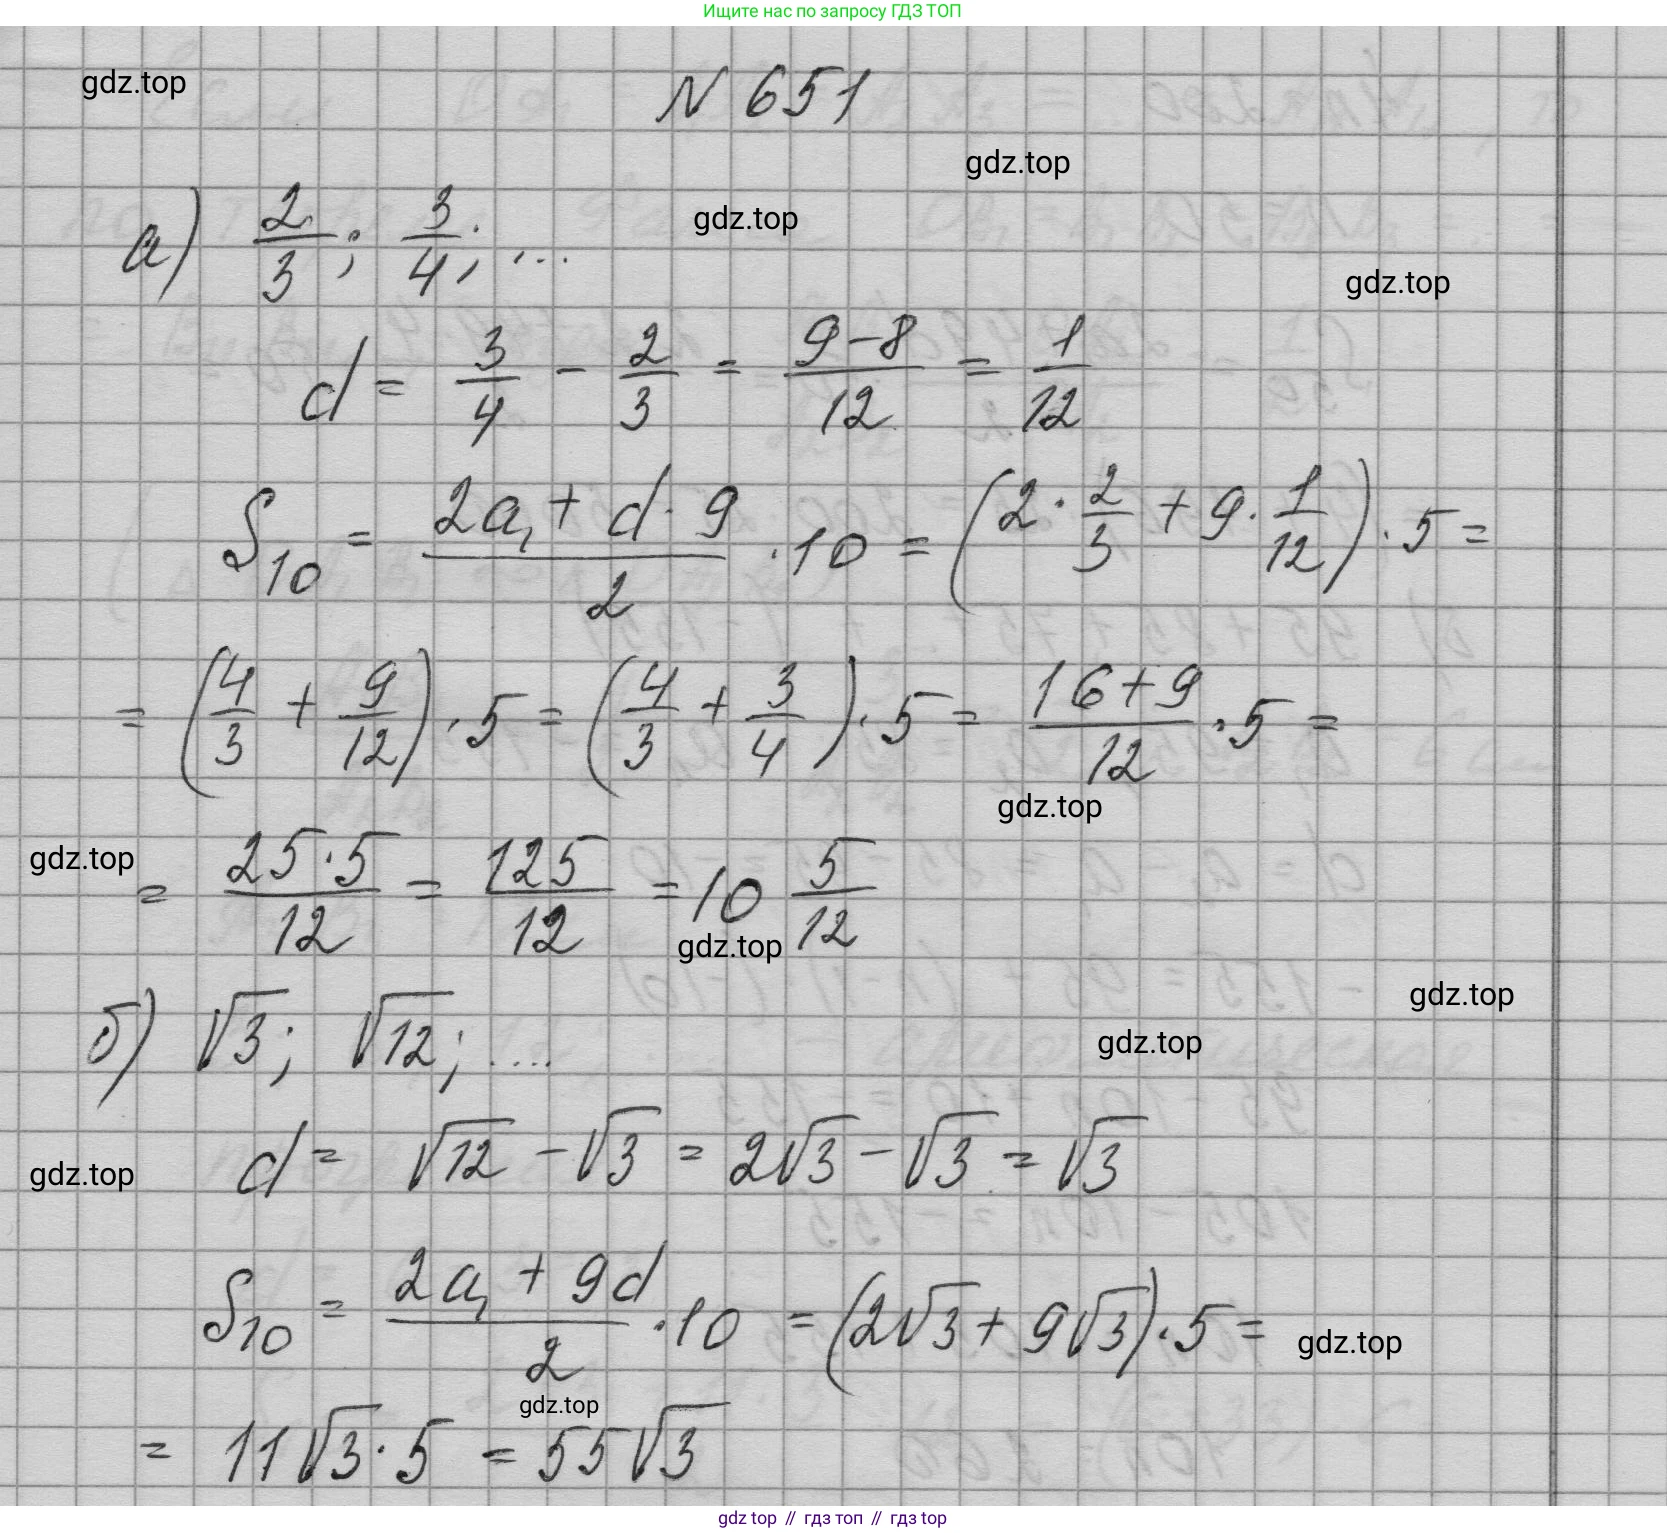 Ищите нас по запросу ГДЗ ТОП
gdz.top
N 651
gdz.top
а) 2/3; 3/4; ...
gdz.top
gdz.top
d = 3/4 - 2/3 = (9-8)/12 = 1/12
S₁₀ = (2a₁ + d · 9)/2 · 10 = (2 · 2/3 + 9 · 1/12) · 5 =
= (4/3 + 9/12) · 5 = (4/3 + 3/4) · 5 = (16+9)/12 · 5 =
gdz.top
gdz.top
= (25·5)/12 = 125/12 = 10 5/12
gdz.top
gdz.top
б) √3; √12; ....
gdz.top
d = √12 - √3 = 2√3 - √3 = √3
gdz.top
S₁₀ = (2a₁ + 9d)/2 · 10 = (2√3 + 9√3) · 5 =
gdz.top
gdz.top
= 11√3 · 5 = 55√3
gdz top // гдз топ // гдз top